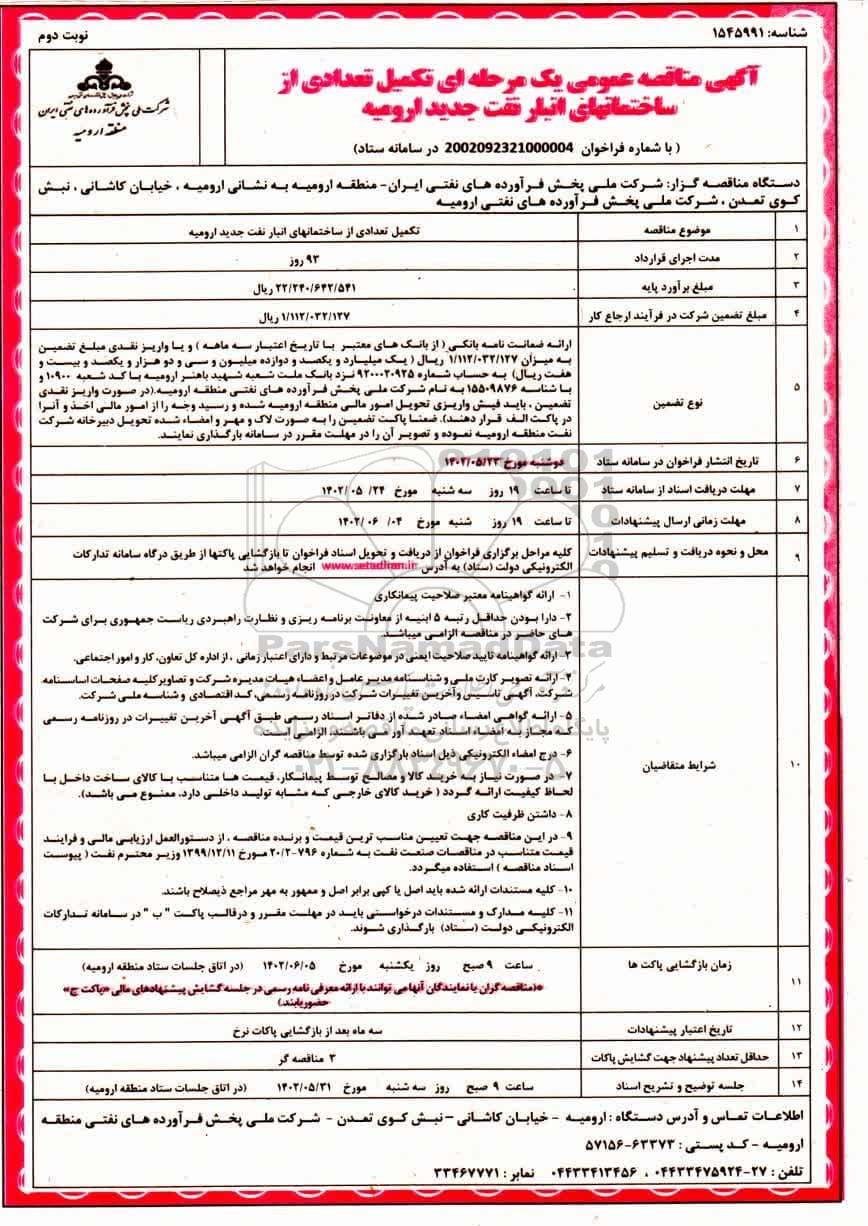 شناسه: ۱۵۴۵۹۹۱
نوبت دوم
آگهی مناقصه عمومی یک مرحله ای تکمیل تعدادی از
ساختمانهای انبار نفت جدید ارومیه
( با شماره فراخوان 2002092321000004 در سامانه ستاد)
شرکت ملی پخش فرآورده های نفتی ایران
منطقه ارومیه
دستگاه مناقصه گزار: شرکت ملی پخش فرآورده های نفتی ایران- منطقه ارومیه به نشانی ارومیه ، خیابان کاشانی ، نبش
کوی تمدن ، شرکت ملی پخش فرآورده های نفتی ارومیه
۱ موضوع مناقصه تکمیل تعدادی از ساختمانهای انبار نفت جدید ارومیه
۲ مدت اجرای قرارداد ۹۳ روز
۳ مبلغ برآورد پایه ۲۲/۲۴۰/۶۴۲/۵۴۱ ریال
۴ مبلغ تضمین شرکت در فرآیند ارجاع کار ۱/۱۱۲/۰۳۲/۱۲۷ ریال
۵ نوع تضمین
ارائه ضمانت نامه بانکی ( از بانک های معتبر با تاریخ اعتبار سه ماهه ) و یا واریز نقدی مبلغ تضمین
به میزان ۱/۱۱۲/۰۳۲/۱۲۷ ریال ( یک میلیارد و یکصد و دوازده میلیون و سی و دو هزار و یکصد و بیست و
هفت ریال) به حساب شماره ۹۲۰۰۰۲۰۹۲۵ نزد بانک ملت شعبه شهید باهنر ارومیه با کد شعبه ۱۰۹۰۰ و
با شناسه ۱۵۵۰۹۸۷۶ به نام شرکت ملی پخش فرآورده های نفتی منطقه ارومیه.(در صورت واریز نقدی
تضمین ، باید فیش واریزی تحویل امور مالی منطقه ارومیه شده و رسید وجه را از امور مالی اخذ و آنرا
در پاکت الف قرار دهند). ضمنا پاکت تضمین را به صورت لاک و مهر و امضاء شده تحویل دبیرخانه شرکت
نفت منطقه ارومیه نموده و تصویر آن را در مهلت مقرر در سامانه بارگذاری نمایند.
۶ تاریخ انتشار فراخوان در سامانه ستاد دوشنبه مورخ ۱۴۰۲/۰۵/۲۳
۷ مهلت دریافت اسناد از سامانه ستاد تا ساعت ۱۹ روز سه شنبه مورخ ۲۴/ ۰۵ /۱۴۰۲
۸ مهلت زمانی ارسال پیشنهادات تا ساعت ۱۹ روز شنبه مورخ ۰۴/ ۰۶ /۱۴۰۲
۹ محل و نحوه دریافت و تسلیم پیشنهادات کلیه مراحل برگزاری فراخوان از دریافت و تحویل اسناد فراخوان تا بازگشایی پاکتها از طریق درگاه سامانه تدارکات
الکترونیکی دولت (ستاد) به آدرس www.setadiran.ir انجام خواهد شد
۱۰ شرایط متقاضیان
۱- ارائه گواهینامه معتبر صلاحیت پیمانکاری
۲- دارا بودن حداقل رتبه ۵ ابنیه از معاونت برنامه ریزی و نظارت راهبردی ریاست جمهوری برای شرکت
های حاضر در مناقصه الزامی میباشد.
۳- ارائه گواهینامه تایید صلاحیت ایمنی در موضوعات مرتبط و دارای اعتبار زمانی ، از اداره کل تعاون، کار و امور اجتماعی.
۴- ارائه تصویر کارت ملی و شناسنامه مدیر عامل و اعضاء هیات مدیره شرکت و تصاویر کلیه صفحات اساسنامه
شرکت، آگهی تاسیس و آخرین تغییرات شرکت در روزنامه رسمی، کد اقتصادی و شناسه ملی شرکت.
۵- ارائه گواهی امضاء صادر شده از دفاتر اسناد رسمی طبق آگهی آخرین تغییرات در روزنامه رسمی
که مجاز به امضاء اسناد تعهد آور می باشند الزامی است.
۶- درج امضاء الکترونیکی ذیل اسناد بارگزاری شده توسط مناقصه گران الزامی میباشد.
۷- در صورت نیاز به خرید کالا و مصالح توسط پیمانکار، قیمت ها متناسب با کالای ساخت داخل با
لحاظ کیفیت ارائه گردد ( خرید کالای خارجی که مشابه تولید داخلی دارد، ممنوع می باشد).
۸- داشتن ظرفیت کاری
۹- در این مناقصه جهت تعیین مناسب ترین قیمت و برنده مناقصه ، از دستورالعمل ارزیابی مالی و فرایند
قیمت متناسب در مناقصات صنعت نفت به شماره ۷۹۶-۲۰/۲ مورخ ۱۳۹۹/۱۲/۱۱ وزیر محترم نفت ( پیوست
اسناد مناقصه ) استفاده میگردد.
۱۰- کلیه مستندات ارائه شده باید اصل یا کپی برابر اصل و ممهور به مهر مراجع ذیصلاح باشند.
۱۱- کلیه مدارک و مستندات درخواستی باید در مهلت مقرر و درقالب پاکت " ب " در سامانه تدارکات
الکترونیکی دولت (ستاد) بارگذاری شوند.
۱۱ زمان بازگشایی پاکت ها ساعت ۹ صبح روز یکشنبه مورخ ۱۴۰۲/۰۶/۰۵ (در اتاق جلسات ستاد منطقه ارومیه)
*(مناقصه گران یا نمایندگان آنها می توانند با ارائه معرفی نامه رسمی در جلسه گشایش پیشنهادهای مالی «پاکت ج»
حضور یابند)
۱۲ تاریخ اعتبار پیشنهادات سه ماه بعد از بازگشایی پاکات نرخ
۱۳ حداقل تعداد پیشنهاد جهت گشایش پاکات ۳ مناقصه گر
۱۴ جلسه توضیح و تشریح اسناد ساعت ۹ صبح روز سه شنبه مورخ ۱۴۰۲/۰۵/۳۱ (در اتاق جلسات ستاد منطقه ارومیه)
اطلاعات تماس و آدرس دستگاه : ارومیه - خیابان کاشانی – نبش کوی تمدن - شرکت ملی پخش فرآورده های نفتی منطقه
ارومیه - کد پستی : ۶۳۳۷۳-۵۷۱۵۶
تلفن : ۲۷-۰۴۴۳۳۴۷۵۹۲۴ ، ۰۴۴۳۳۴۱۳۴۵۶ نمابر : ۳۳۴۶۷۷۷۱
ParsNamadData
۰۲۱-۸۸۳۴۹۶۷۰-۵